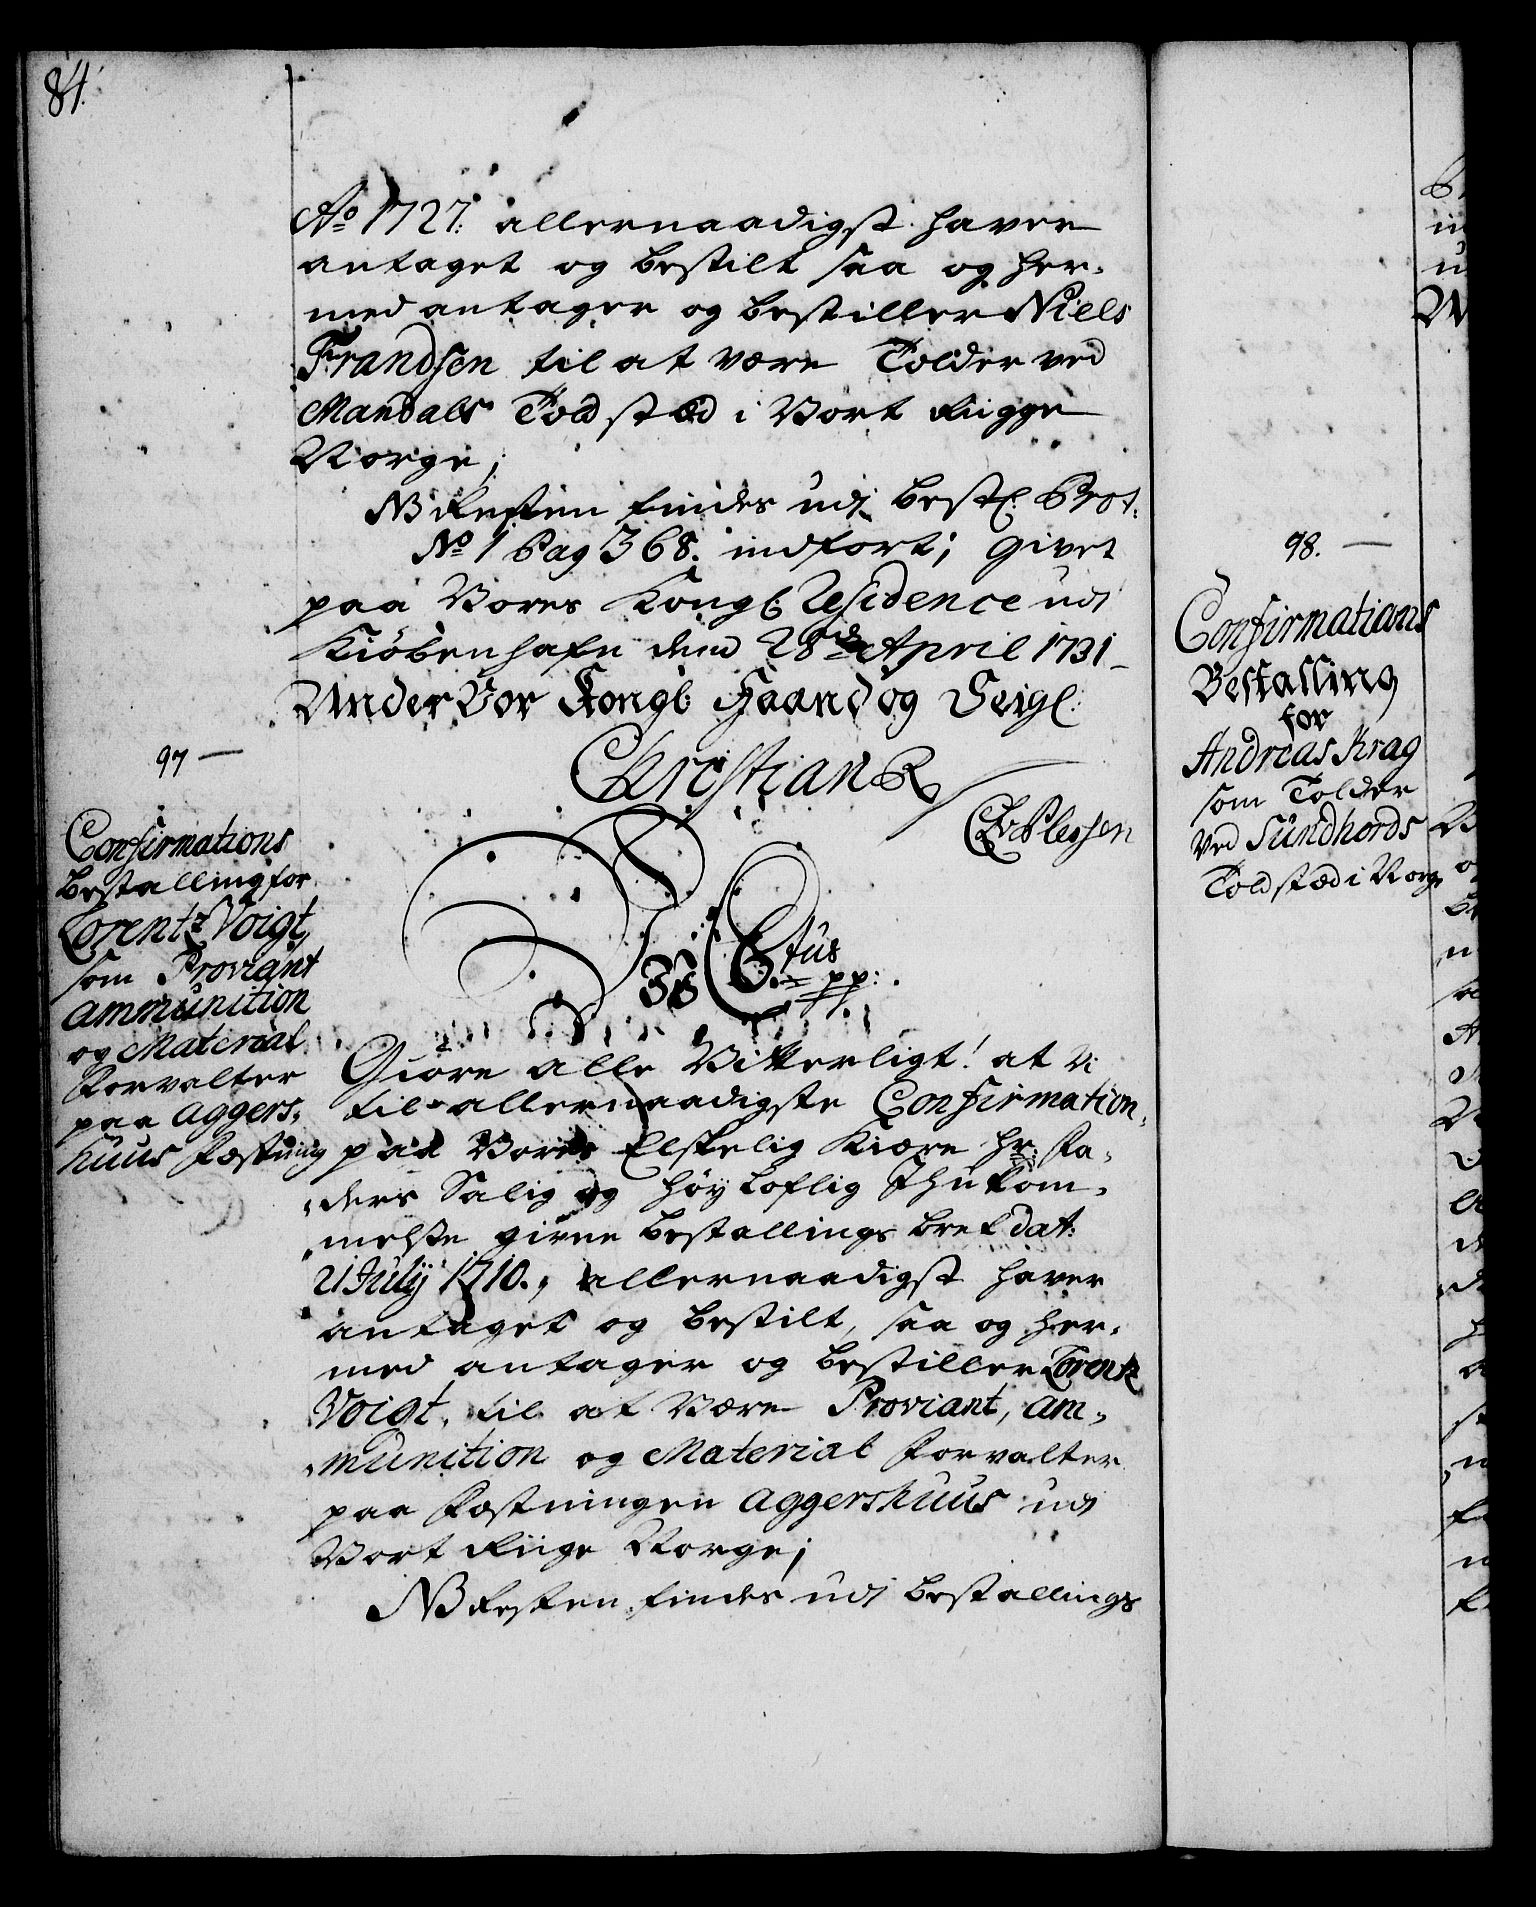 84.
Ao 1727. allernaadigst haver
antaget og bestilt saa og her-
med antager og bestiller Niels
Frandsen til at være Tolder ved
Mandals Toldstæd i Vort Riigge
Norge;
NB Resten findes udj Bestl: Prot:
No 1 Pag 368. indfört; Givet
paa Vores Kongl: Residence udi
Kiöbenhafn den 28de April 1731
Under Vor Kongl: Haand og Seigl:
Christian R
CAvPlessen
97
Confirmations
Bestalling for
Lorentz Voigt
som Proviant
Ammunition
og Material
Forvalter
paa Aggers-
huus Fæstning
Vi C. 6tus
pp:
Giöre alle Vitterligt! at Vi
til allernaadigste Confirmation
paa Vores Elskelig Kiære Hr. Fa-
ders Salig og Höy Loflig Ihukom-
melse givne Bestallings bref dat:
21 Julij 1710., allernaadigst haver
antaget og bestilt, saa og her-
med antager og bestiller Lorentz
Voigt, til at Være Proviant, Am-
munition og Material Forvalter
paa Fæstningen Aggershuus udi
Vort Riige Norge;
NB Resten findes udj Bestallings
98.
Confirmations
Bestalling
for
Andreas Krag
som Tolder
ved Sundhords
Toldstæd i Norge